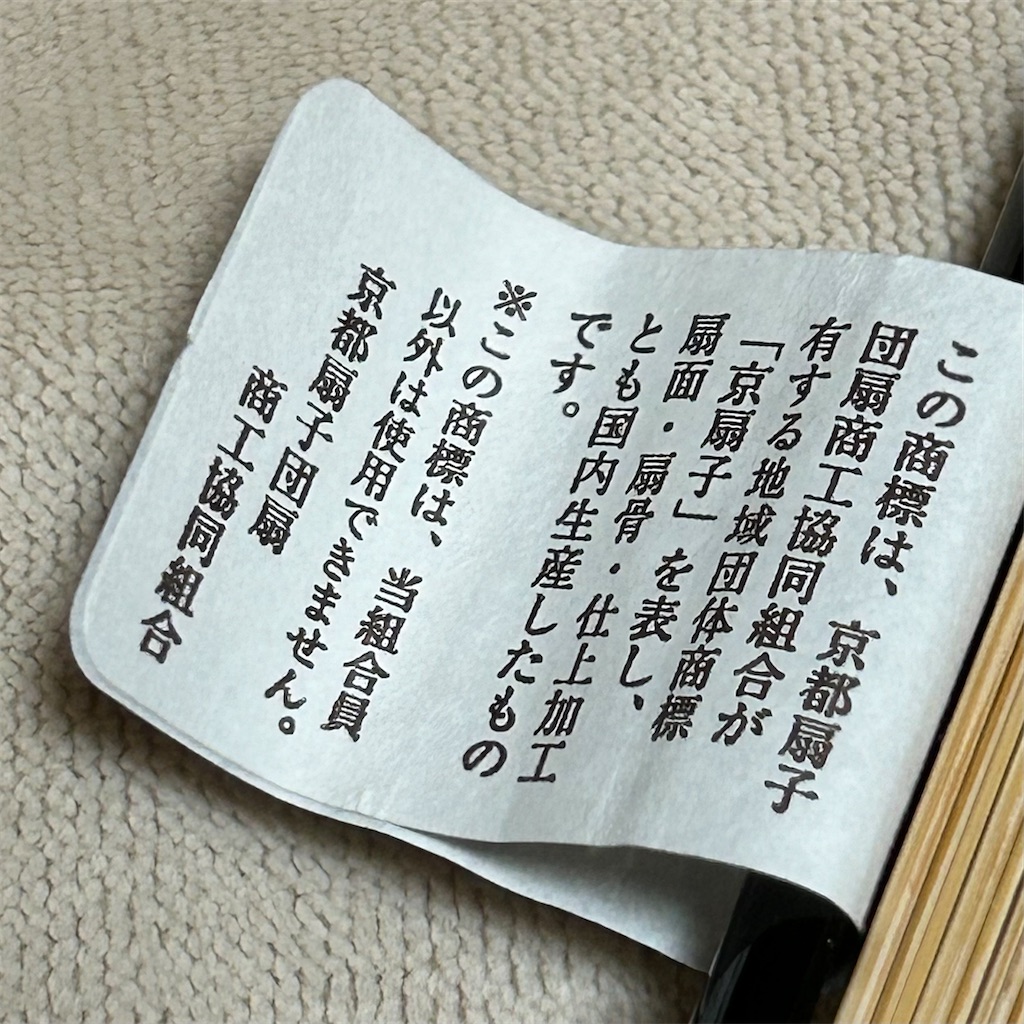 この商標は、京都扇子
団扇商工協同組合が
有する地域団体商標
「京扇子」を表し、
扇面・扇骨・仕上加工
とも国内生産したもの
です。
※この商標は、当組合員
以外は使用できません。
京都扇子団扇
商工協同組合